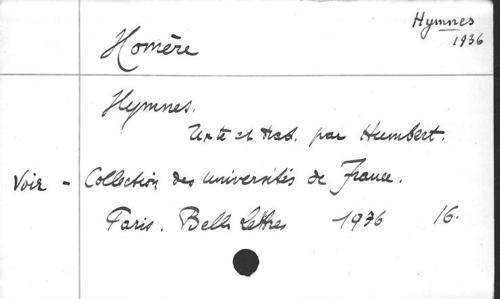 Hymnes
1936
Homère
Hymnes.
Texte et trad. par Humbert.
Voir - Collection des Universités de France.
Paris. Belles Lettres 1936 16.